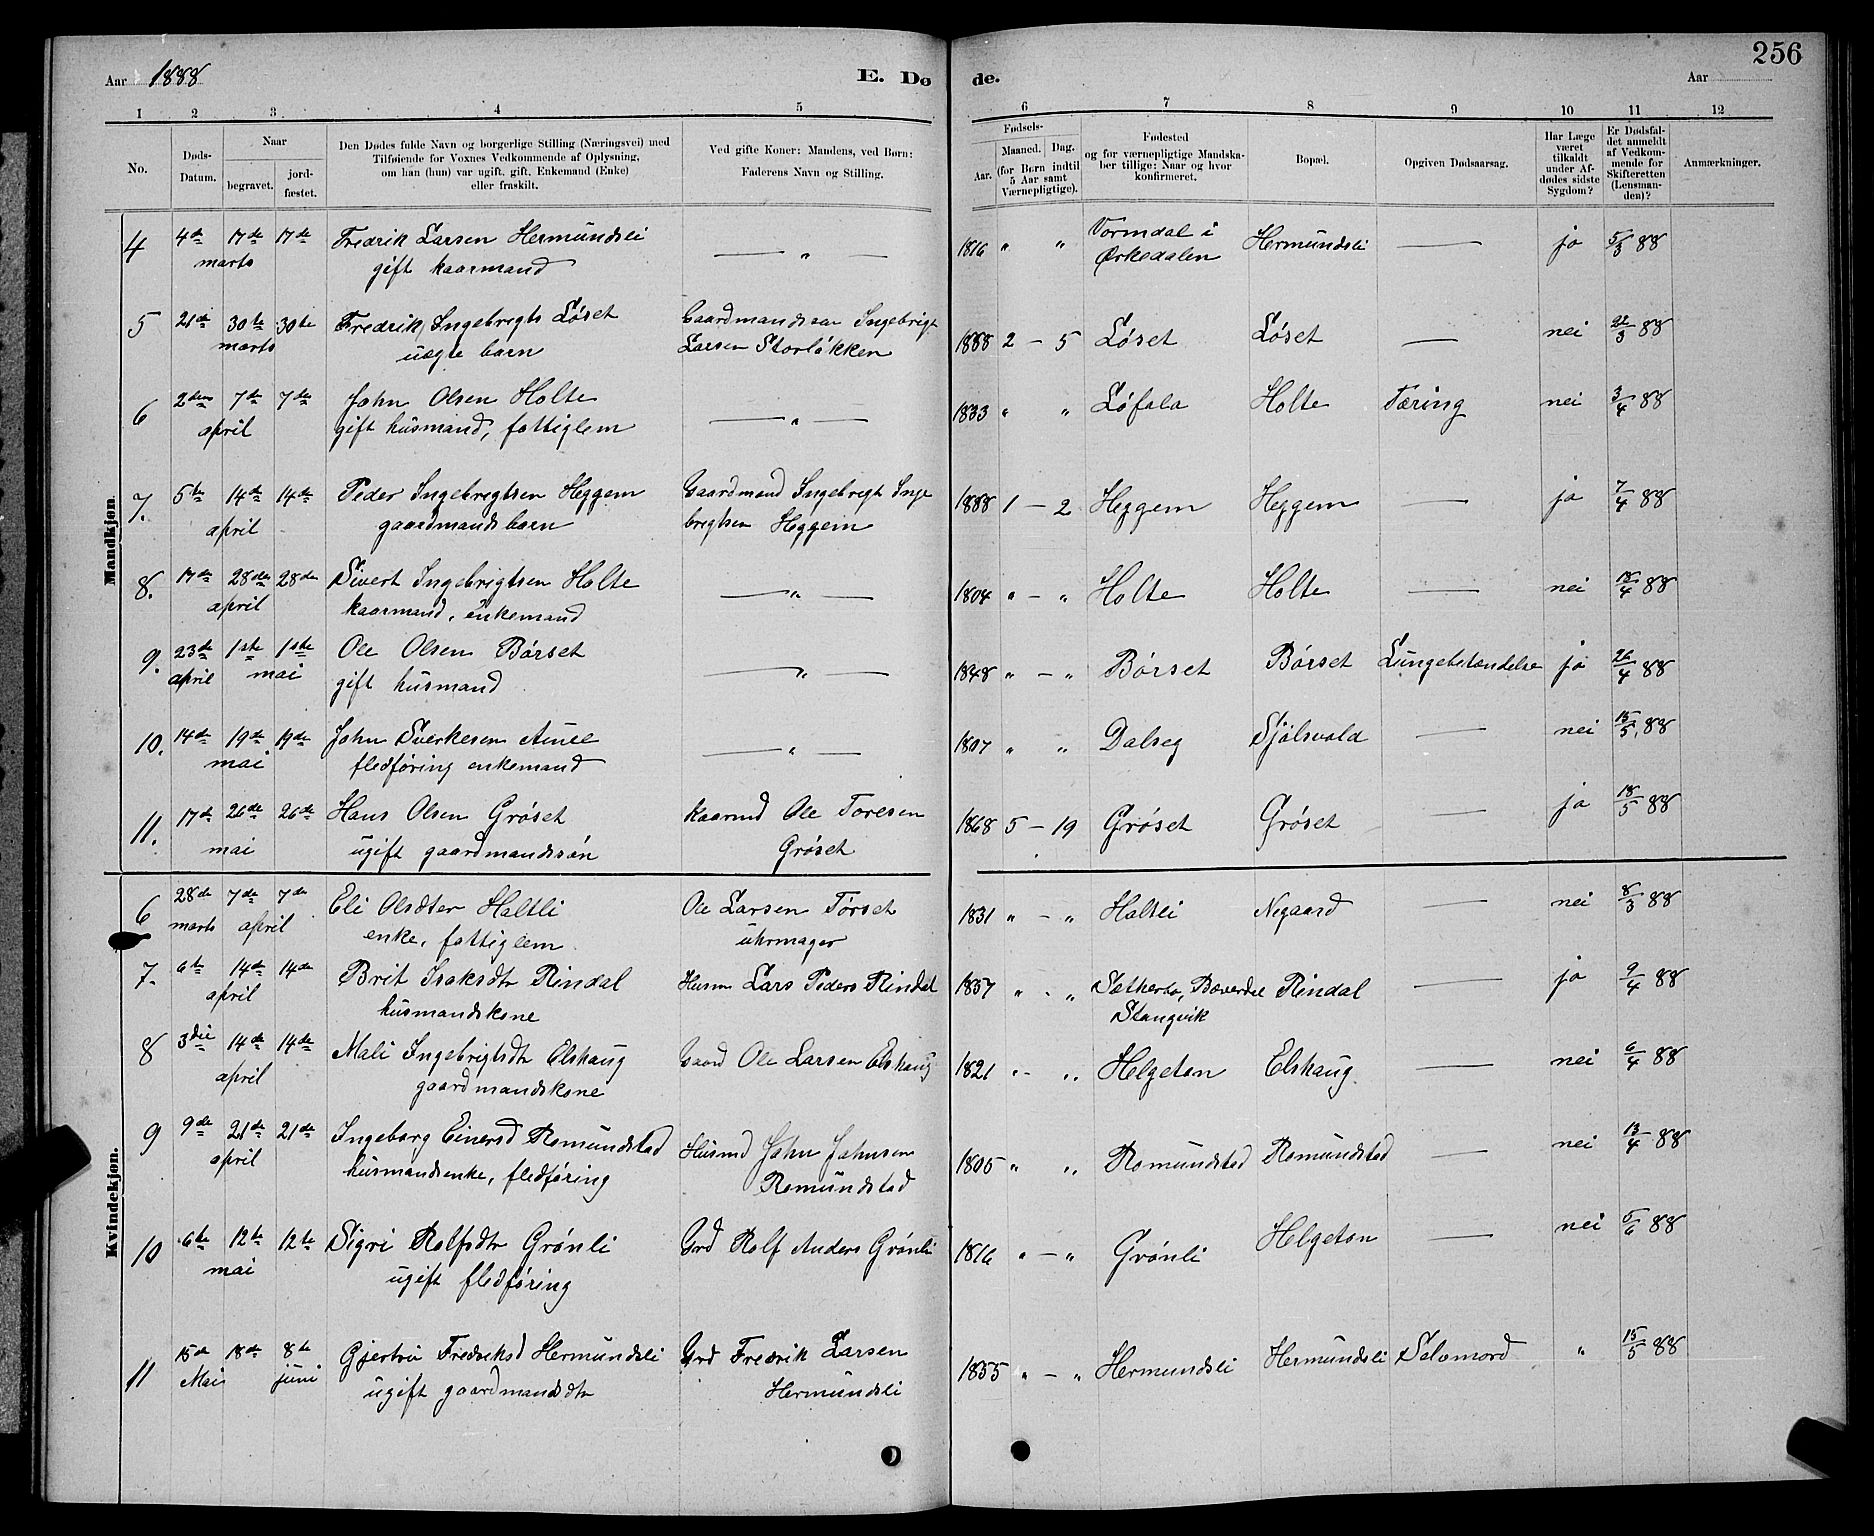 Aar 1888
E. Dø
de.
Aar
256
1 2 3 4 5 6 7 8 9 10 11 12
No.
Døds-Datum.
Naar
begravet.
jord-fæstet.
Den Dødes fulde Navn og borgerlige Stilling (Næringsvei) med
Tilføiende for Voxnes Vedkommende af Oplysning,
om han (hun) var ugift, gift, Enkemand (Enke)
eller fraskilt.
Ved gifte Koner: Mandens, ved Børn:
Faderens Navn og Stilling.
Fødsels-
Aar.
Maaned. Dag.
(for Børn indtil
5 Aar samt
Værnepligtige).
Fødested
og for værnepligtige Mandska-
ber tillige: Naar og hvor
konfirmeret.
Bopæl.
Opgiven Dødsaarsag.
Har Læge
været
tilkaldt
under Af-
dødes sidste
Sygdom?
Er Dødsfal-
det anmeldt
af Vedkom-
mende for
Skifteretten
(Lensman-
den)?
Anmærkninger.
Mandkjøn.
4 4de 17de 17de Fredrik Larsen Hermundsli — „ — 1816 „ „ Vormdal i Hermundsli — ja 5/3 88
marts gift kaarmand Ørkedalen
5 21de 30te 30te Fredrik Ingebrigts Løset Gaardmandssøn Ingebrigt 1888 2 – 5 Løset Løset — nei 22/3 88
marts uægte barn Larsen Storløkken
6 2den 7de 7de John Olsen Holte — „ — 1833 „ „ Løfald Holte Tæring nei 3/4 88
april gift husmand, fattiglem
7. 5te 14de 14de Peder Ingebrigtsen Heggem Gaardmand Ingebrigt Inge 1888 1 – 2 Heggem Heggem — ja 7/4 88
april gaardmandsbarn brigtsen Heggem
8. 17de 28de 28de Sivert Ingebrigtsen Holte — „ — 1804 „ – „ Holte Holte — nei 18/4 88
april kaarmand, enkemand
9. 23de 1ste 1ste Ole Olsen Børset — „ — 1848 „ – „ Børset Børset Lungebetændelse ja 26/4 88
april mai gift husmand
10. 14de 19de 19de John Sverkesen Aune — „ — 1807 „ „ Dalseg Sjølsvold — nei 15/5 88
mai fledføring enkemand
11. 17de 26de 26de Hans Olsen Grøset kaarmd Ole Toresen 1868 5 – 19 Grøset Grøset — ja 18/5 88
mai ugift gaardmandssøn Grøset
Kvindekjøn.
6 28de 7de 7de Eli Olsdter Haltli Ole Larsen Tørset 1831 „ – „ Haltli Negaard — nei 8/3 88
marts april enke, fattiglem uhrmager
7. 6te 14de 14de Brit Isaksdtr Rindal Husm Lars Peders Rindal 1837 „ - „ Sætherbø, Bæverdal Rindal — ja 9/4 88
april husmandskone Stangvik
8 3die 14de 14de Mali Ingebrigtsdtr Elshaug Gaard Ole Larsen Elshaug 1821 „ - „ Helgeton Elshaug — nei 6/4 88
april gaardmandskone
9 9de 21de 21de Ingeborg Einersd Romundstad Husmd John Johnsen 1805 „ „ Romundstad Romundstad — nei 13/4 88
april husmandsenke, fledføring Romundstad
10 6te 12te 12te Sigri Rolfsdtr Grønli Grd Rolf Anders Grønli 1816 „ – „ Grønli Helgeton — nei 5/6 88
mai ugift fledføring
11 15de 18de 8te Gjertru Fredriksd Hermundsli Grd Fredrik Larsen 1855 „ – „ Hermundsli Hermundsli Selvmord „ 15/5 88
Mai juni ugift gaardmandsdtr Hermundsli